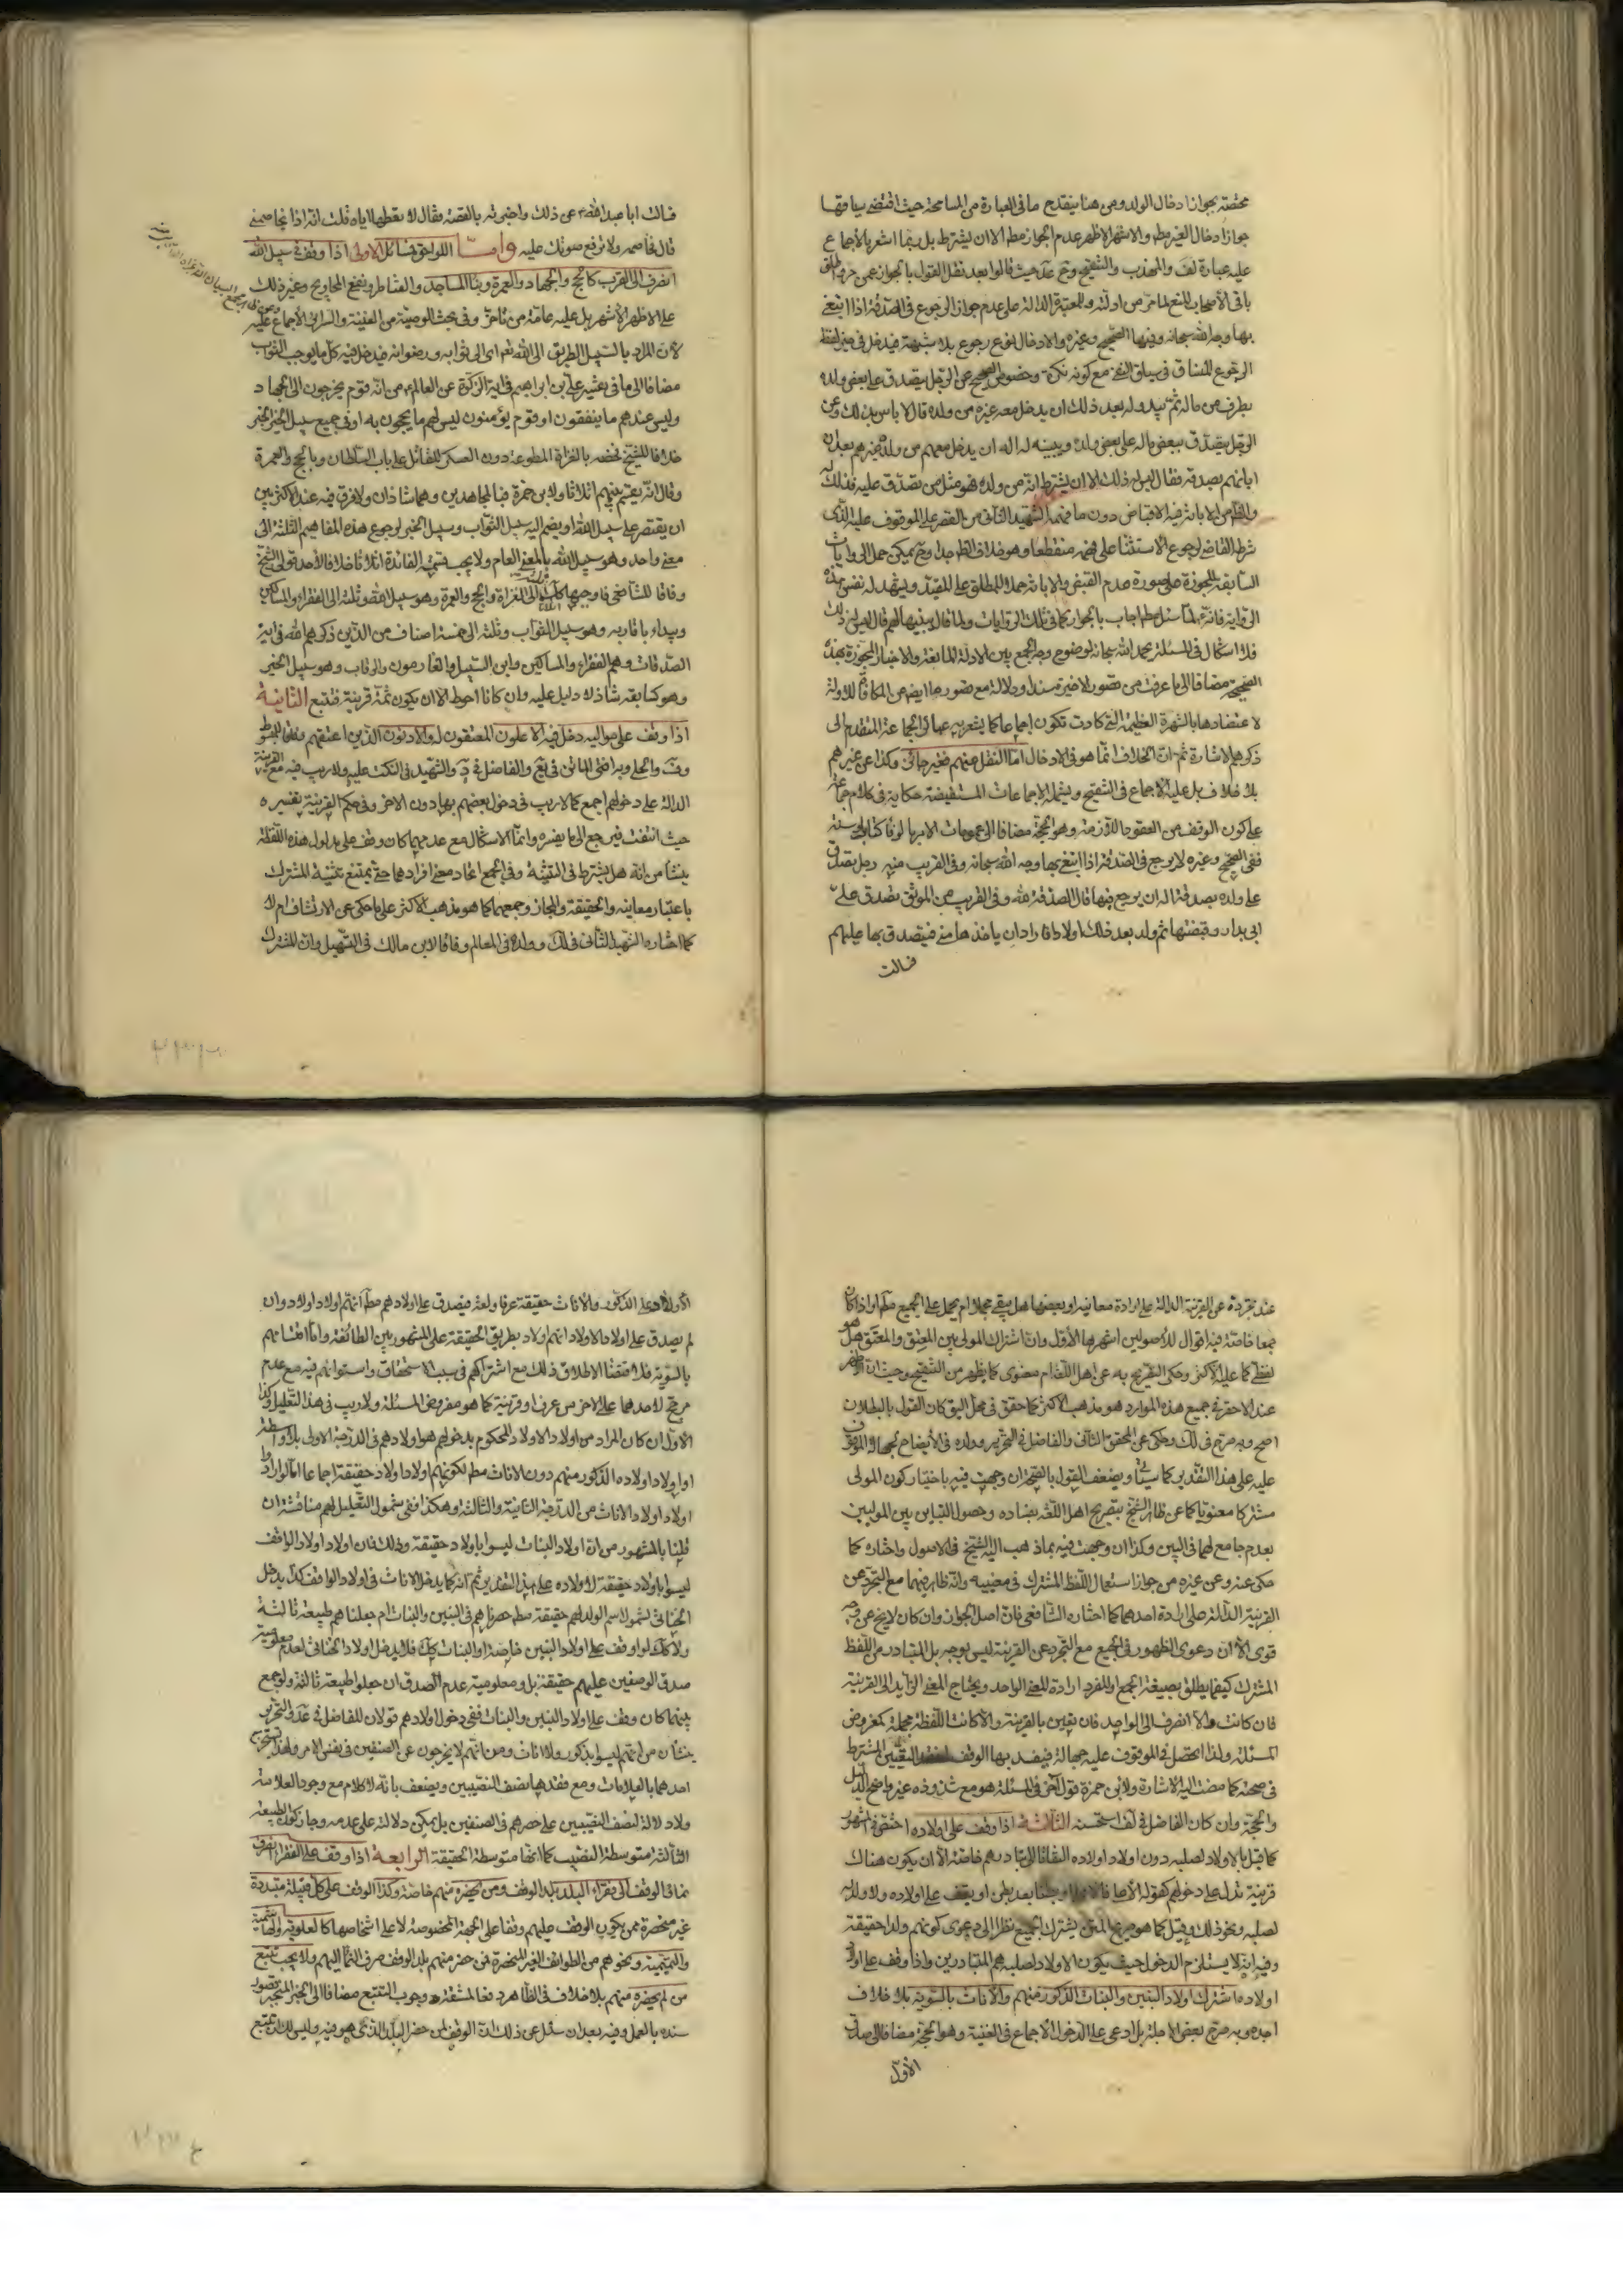 مختصة بجواز ادخال الولد ومن هنا ينقدح ما في العبارة من المسامحة حيث اقتضى سياقها
جواز ادخال الغير مطم والاشهر الاظهر عدم الجواز مطم الا ان يشترط بل ربما اشعر بالاجماع
عليه عبارة لف والمهذب والتنقيح حيث قالوا بعد نقل القول بالجواز عن
باقي الأصحاب المنع لما مر من ادلته وللمعتبرة الدالة على عدم جواز الرجوع في الصدقة اذا ابتغى
بها وجه الله سبحانه وفيها الصحيح وغيره والادخال نوع رجوع بلا شبهة فيدخل في حيز لفظ
الرجوع المساق في سياق النفي مع كونه نكرة وخصوص الصحيح عن الرجل يتصدق على بعض ولده
بطرف من ماله ثم يبدو له بعد ذلك ان يدخل معه غيره من ولده قال لا باس بذلك وعن
الرجل يتصدق ببعض ماله على بعض ولده ويبينه له اله ان يدخل معهم من ولده غيرهم بعد ان
ابانهم بصدقة فقال ليس له ذلك الا ان يشترط انه من ولده فهو مثل من تصدق عليه فذلك له
من الابانة فيه الاقباض دون ما فهمه الشهيد الثاني من القصر على الموقوف عليه الذي
شرطه القاضي لرجوع الاستثناء على فهمه منقطعا وهو خلاف الظ جدا وح يمكن حمل الروايات
السابقة المجوزة على صورة عدم القبض والابانة حملا للمطلق على المقيد ويشهد له نفس هذه
الرواية فانه لما سئل مطم اجاب بالجواز كما في تلك الروايات ولما قال يبينها لهم قال ليس له ذلك
فلا اشكال في المسئلة بحمد الله سبحانه لوضوح وجه الجمع بين الادلة المانعة والاخبار المجوزة بهذه
الصحيحة مضافا الى ما عرفت من قصور الاخيرة سندا ودلالة مع قصورها ايضا عن المكافاة للاولة
لاعتضادها بالشهرة العظيمة التي كادت تكون اجماعا كما يشعر به عبائر الجماعة المتقدم الى
ذكرهم الاشارة ثم ان الخلاف انما هو في الادخال اما النقل منهم فغير جائز وكذا عن غيرهم
بلا خلاف بل عليه الاجماع في التنقيح ويشمله الاجماعات المستفيضة حكاية في كلام جماعة
على كون الوقف من العقود اللازمة وهو الحجة مضافا الى عمومات الامر بالوفاء كتابا وسنة
ففي الصحيح وغيره لا يرجع في الصدقة اذا ابتغي بها وجه الله سبحانه وفي القريب منه رجل تصدق
على ولده بصدقة اله ان يرجع فيها قال الصدقة لله وفي القريب من الموثق تصدق علي
ابي بدار وقبضتها ثم ولد بعد ذلك اولاد فاراد ان ياخذها مني فيتصدق بها عليهم
فسالت
فسالت ابا عبد الله ع عن ذلك واخبرته بالقصة فقال لا تعطها اياه قلت انه اذا يخاصمني
قال فخاصمه ولا ترفع صوتك عليه واما اللواحق فمسائل الاولى اذا وقف في سبيل الله
انصرف الى القرب كالحج والجهاد والعمرة وبناء المساجد والقناطر ونفع المحاويج وغير ذلك
على الاظهر الاشهر بل عليه عامة من تاخر وفي بحث الوصية من الغنية والسرائر الاجماع عليه
لان المراد بالسبيل الطريق الى الله تعم اي الى ثوابه ورضوانه فيدخل فيه كل ما يوجب الثواب
مضافا الى ما في تفسير علي بن ابراهيم في اية الزكوة عن العالم ع من انه قوم يخرجون الى الجهاد
وليس عندهم ما ينفقون او قوم يؤمنون ليس لهم ما يحجون به او في جميع سبيل الخير الخبر
خلافا للشيخ فخصه بالغزاة المطوعة دون العسكر المقاتل على باب السلطان وبالحج والعمرة
وقال انه يقسم بينهم اثلاثا ولابن حمزة فبالمجاهدين وهما شاذان ولا فرق فيه عند الاكثر بين
ان يقتصر على سبيل الله او يضم اليه سبيل الثواب وسبيل الخير لرجوع هذه المفاهيم الثلثة الى
معنى واحد وهو سبيل الله بالمعنى العام ولا يجب قسمة الفائدة اثلاثا خلافا لاحد قولي الشيخ
وفاقا للشافعي فاوجبها كك الى الغزاة والحج والعمرة وهو سبيل الله وثلثه الى الفقراء والمساكين
ويبداء باقاربه وهو سبيل الثواب وثلثه الى خمسة اصناف من الذين ذكرهم الله في اية
الصدقات وهم الفقراء والمساكين وابن السبيل والغارمون والرقاب وهو سبيل الخير
وهو كسابقه شاذ لا دليل عليه وان كانا احوط الا ان يكون ثمة قرينة فتتبع الثانية
اذا وقف على مواليه دخل فيه الاعلون المعتقون له والادنون الذين اعتقهم وفاقا للمبسوط
وف والحلي وبراضي الماتن في يع والفاضل في د والشهيد في النكت عليه ولا ريب فيه مع القرينة
الدالة على دخولهم اجمع كما لا ريب في دخول بعضهم بها دون الاخر وفي حكم القرينة تفسيره
حيث انتفت فيرجع الى ما يفسره وانما الاشكال مع عدمهما كان وقف على مدلول هذه اللفظة
ينشأ من انه هل يشترط في التثنية وفي الجمع اتحاد معنى افرادهما حتى يمتنع تثنية المشترك
باعتبار معانيه والحقيقة والمجاز وجمعهما كما هو مذهب الاكثر على ما حكي عن الارتشاف ام لا
كما اختاره الشهيد الثاني في لك وولده في المعالم وفاقا لابن مالك في التسهيل وان المشترك
عند تجرده عن القرينة الدالة على ارادة معانيه او بعضها هل يبقى مجملا ام يحمل على الجميع مطم او اذا كان
جمعا خاصة فيه اقوال للاصوليين اشهرها الأول وان اشتراك المولى بين المعتق والمعتق هل هو
لفظي كما عليه الاكثر وحكي التصريح به عن اهل اللغة ام معنوي كما يظهر من التنقيح وحيث ان الاظهر
عند الاحقر في جميع هذه الموارد هو مذهب الاكثر كما حقق في محل اليق كان القول بالبطلان
اصح وبه صرح في لك وحكي عن المحقق الثاني والفاضل في التحرير وولده في الأيضاح لجهالة الموقوف
عليه على هذا التقدير كما سيئاتي ويضعف القول بالصحة ان وجهت فيه باختيار كون المولى
مشتركا معنويا كما عن ظاهر الشيخ بتصريح اهل اللغة بضاده وحصول التباين بين الموليين
بعدم جامع لهما في البين وكذا ان وجهت فيه بما ذهب اليه الشيخ في الاصول واختاره كما
حكي عنه وعن غيره من جواز استعمال اللفظ المشترك في معنييه وانه ظاهر فيهما مع التجرد عن
القرينة الدالة على ارادة احدهما كما اختاره الشافعي فان اصل الجواز وان كان لا يخ عن وجه
قوي الا ان دعوى الظهور في الجميع مع التجرد عن القرينة ليس بوجه بل المتبادر من اللفظ
المشترك كيفما يطلق بصيغة الجمع او المفرد ارادة المعنى الواحد ويحتاج المعنى الزائد الى القرينة
فان كانت والا انصرف الى الواحد فان تعين بالقرينة والا كانت اللفظة مجملة كمفروض
المسئلة ولذا يحصل في الموقوف عليه جهالة فيفسد بها الوقف لفقد التعيين المشترط
في صحته كما مضت اليه الاشارة ولابن حمزة قول اخر في المسئلة هو مع شذوذه غير واضح الدليل
والحجة وان كان الفاضل في لف استحسنه الثالثة اذا وقف على اولاده اختص في المشهور
كما قيل بالاولاد لصلبه دون اولاد اولاده التفاتا الى تبادرهم خاصة الا ان يكون هناك
قرينة تدل على دخولهم كقوله الاعلى فالاعلى او بطنا بعد بطن او يقف على اولاده ولا ولد له
لصلبه ونحو ذلك وقيل كما هو صريح المتن يشترك الجميع نظرا الى دعوى كونهم ولدا حقيقة
وفيه انه لا يستلزم الدخول حيث يكون الاولاد لصلبه هم المتبادرين واذا وقف على اولاد
اولاده اشترك اولاد البنين والبنات الذكور منهم والاناث بالسوية بلا خلاف
اجده وبه صرح بعض الاجلة بل ادعى على الدخول الاجماع في الغنية وهو الحجة مضافا الى صدق
الأول
الأولاد على الذكور والاناث حقيقة عرفا ولغة فيصدق على اولادهم مطم انهم اولاد اولاد وان
لم يصدق على اولاد الاولاد انهم اولاد بطريق الحقيقة على المشهور بين الطائفة واما اقتسامهم
بالسوية فلاقتضاء الاطلاق ذلك مع اشتراكهم في سبب الاستحقاق واستوائهم فيه مع عدم
مرجح لاحدهما على الاخر من عرف او قرينة كما هو مفروض المسئلة ولا ريب في هذا التعليل وكذا
الاول ان كان المراد من اولاد الاولاد المحكوم بدخولهم هو اولادهم في الدرجة الاولى بلا واسطة
او اولاد اولاده الذكور منهم دون الاناث مطم لكونهم اولاد اولاد حقيقة اجماعا اما لو اراد
اولاد اولاد الاناث من الدرجة الثانية والثالثة وهكذا ففي شمول التعليل لهم مناقشة ان
قلنا بالمشهور من ان اولاد البنات ليسوا باولاد حقيقة وذلك فان اولاد اولاد الواقف
ليسوا باولاد حقيقة لاولاده على هذا التقدير ثم انه كما يدخل الاناث في اولاد الواقف كذا يدخل
الخناثى لشمول اسم الولد لهم حقيقة مطم حصرناهم في البنين والبنات ام جعلناهم طبيعة ثالثة
ولا كك لو وقف على اولاد البنين خاصة او البنات كك فلا يدخل اولاد الخناثى لعدم معلومية
صدق الوصفين عليهم حقيقة بل ومعلومية عدم الصدق ان جعلوا طبيعة ثالثة ولو جمع
بينهما كان وقف على اولاد البنين والبنات ففي دخول اولادهم قولان للفاضل في عد والتحرير
ينشأن من انهم ليسوا بذكور ولا اناث ومن انهم لا يخرجون عن الصنفين في نفس الامر ولهذا يستخرج
احدهما بالعلامات ومع فقدها نصف النصيبين ويضعف بانه لا كلام مع وجود العلامة
ولا دلالة لنصف النصيبين على حصرهم في الصنفين بل يمكن دلالته على عدمه وجاز كون الطبيعة
الثالثة متوسطة النصيب كما انها متوسطة الحقيقة الرابعة اذا وقف على الفقراء انصرف
نماء الوقف الى فقراء البلد بلد الوقف ومن يحضره منهم خاصة وكذا الوقف على كل قبيلة متبددة
غير منحصرة ممن يكون الوقف عليهم وقفا على الجهة المخصوصة لا على اشخاصها كالعلوية والهاشمية
والتميمية ونحوهم من الطوائف الغير المنحصرة فمن حضر منهم بلد الوقف صرف النماء اليهم ولا يجب تتبع
من لم يحضره منهم بلا خلاف في الظاهر دفعا لمشقة وجوب التتبع مضافا الى الخبر المنجبر قصور
سنده بالعمل وفيه بعد ان سئل عن ذلك ان الوقف لمن حضر البلد الذي هو فيه وليس لك ان تتبع